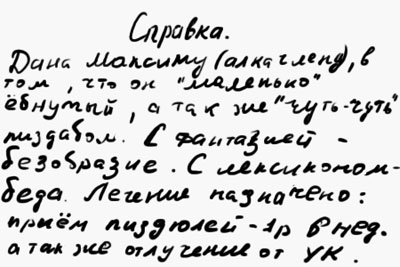 Справка.
Дана Максиму (алкачленд), в
том, что он "маленько"
ёбнутый, а так же "чуть-чуть"
пиздабол. С фантазией -
безобразие. С лексиконом-
беда. Лечение назначено:
приём пиздюлей - 1р в нед.
а так же отлучение от УК.